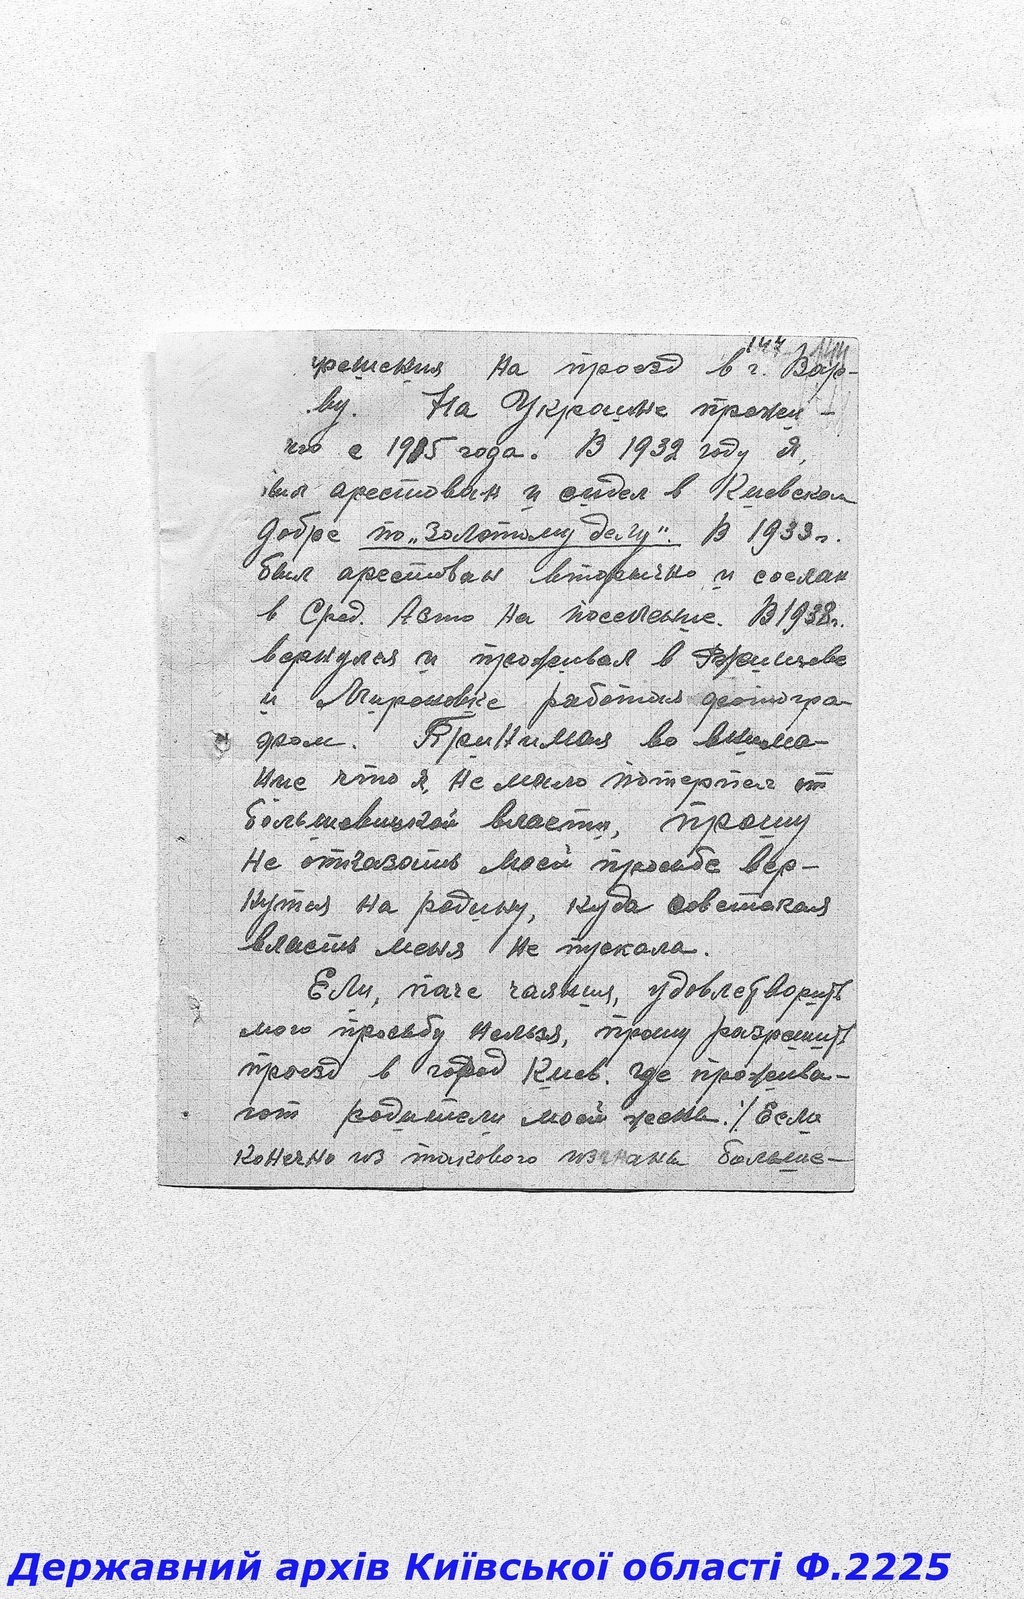 147 144
решения на проезд в г. Вар-
ву. На Украине прожи-
ваю с 1915 года. В 1932 году я,
был арестован и сидел в Киевском
Допре по „Золотому делу“. В 1933 г.
был арестован вторично и сослан
в Сред. Азию на поселение. В 1938 г.
вернулся и проживал в Ржищеве
и Мироновке работал фотогра-
фом. Принимая во внима-
ние что я, не мало потерпел от
большевицкой власти, прошу
не отказать моей просьбе вер-
нутся на родину, куда советская
власть меня не пускала.
Если, паче чаяния, удовлетворить
мою просьбу нельзя, прошу разрешить
проезд в город Киев. где прожива-
ют родители моей жены. /Если
конечно из такового изгнаны больше-
Державний архів Київської області Ф.2225